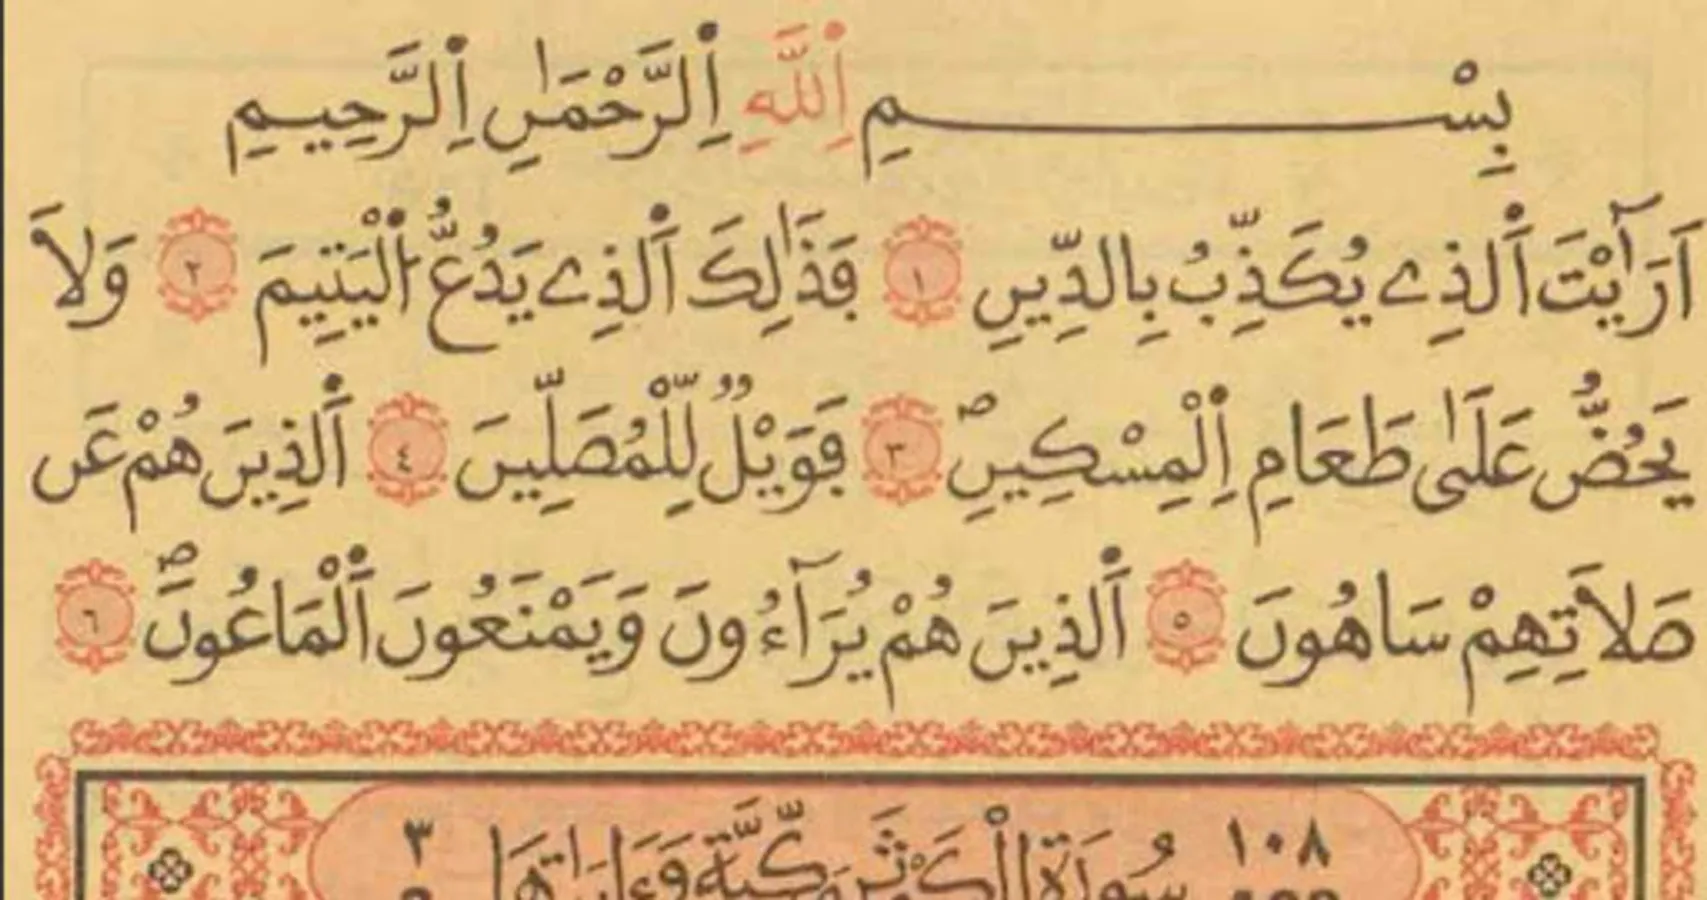 بِسْمِ اِ۬للَّهِ اِ۬لرَّحْمَٰنِ اِ۬لرَّحِيمِ
اَرَآيْتَ اَ۬لذِے يُكَذِّبُ بِالدِّينِ ١ فَذَٰلِكَ اَ۬لذِے يَدُعُّ اُ۬لْيَتِيمَ ٢ وَلَا
يَحُضُّ عَلَىٰ طَعَامِ اِ۬لْمِسْكِينِۖ ٣ فَوَيْلٞ لِّلْمُصَلِّينَ ٤ اَ۬لذِينَ هُمْ عَن
صَلَاتِهِمْ سَاهُونَ ٥ اَ۬لذِينَ هُمْ يُرَآءُونَ وَيَمْنَعُونَ اَ۬لْمَاعُونَۖ ٦
١٠٨ سُورَةُ الْكَوْثَرِ مَكِّيَّة وَءَايَاتُهَا ٣